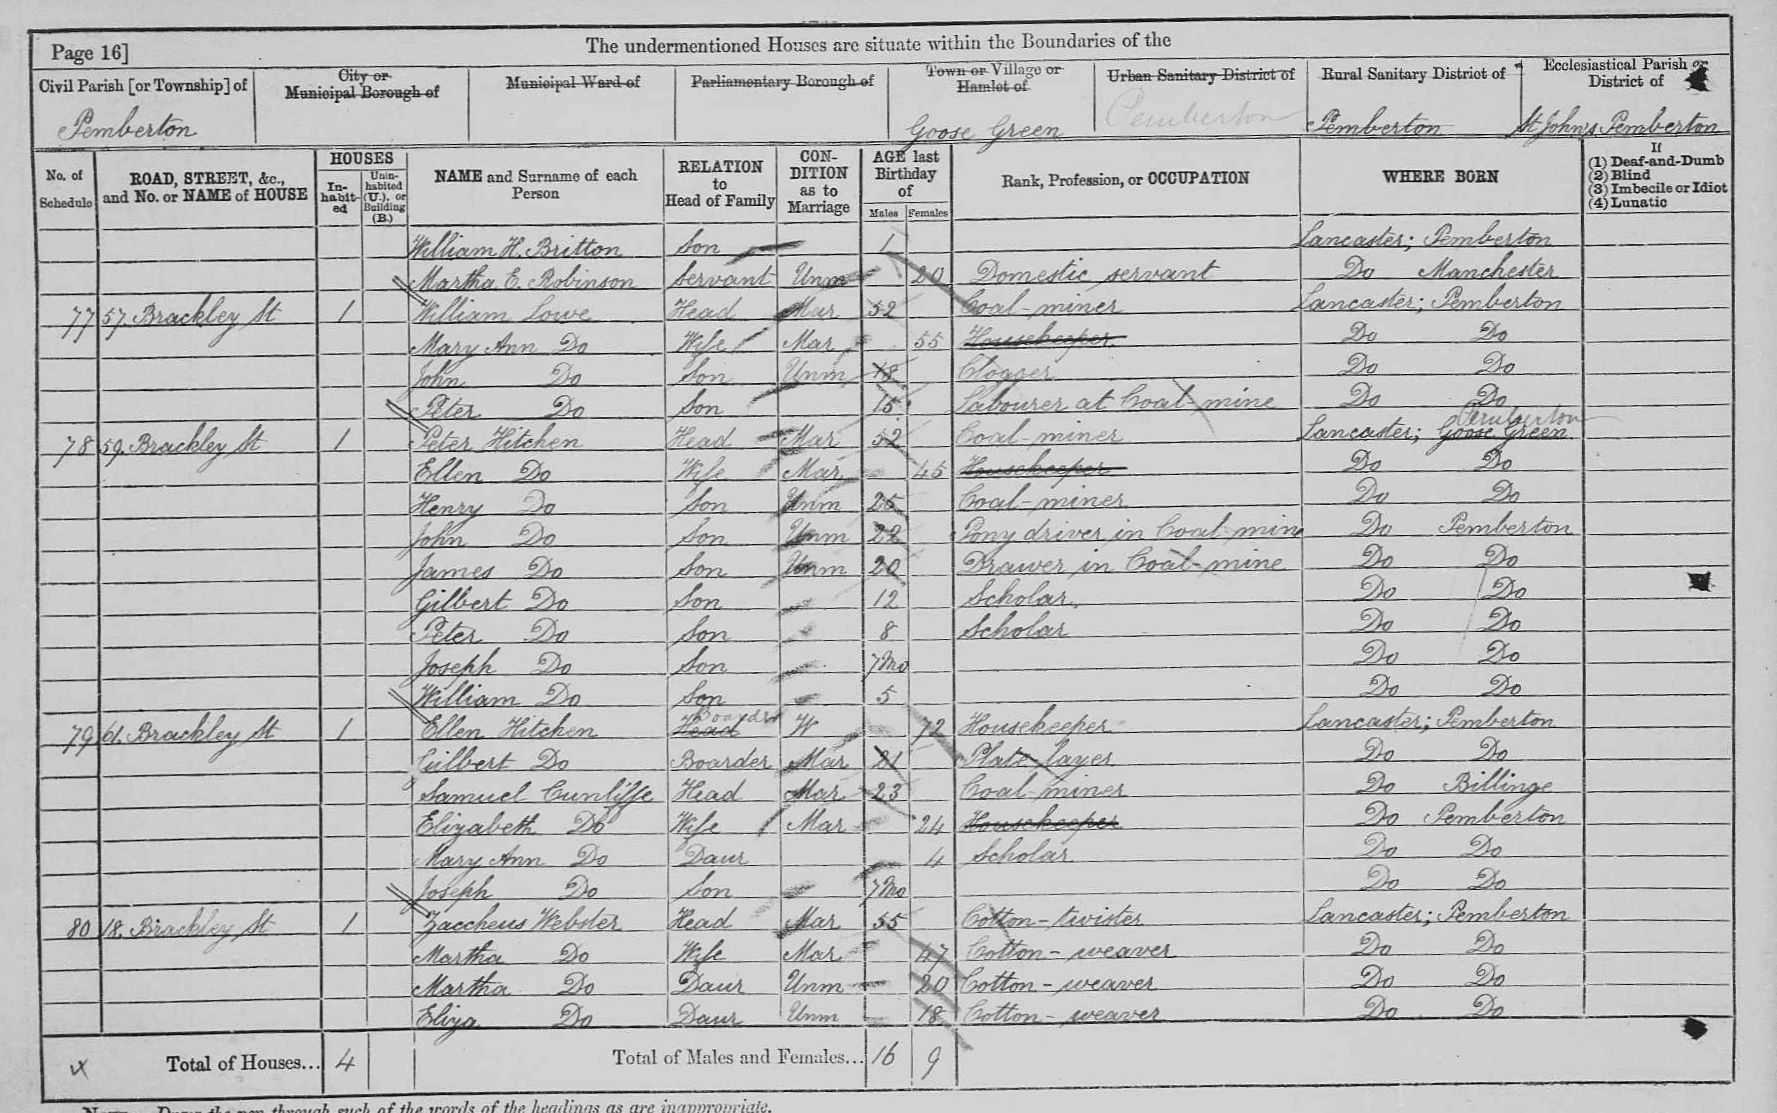 Page 16] The undermentioned Houses are situate within the Boundaries of the
Civil Parish [or Township] of City or Municipal Borough of Municipal Ward of Parliamentary Borough of Town or Village or Hamlet of Urban Sanitary District of Rural Sanitary District of Ecclesiastical Parish or District of
Pemberton Goose Green Pemberton Pemberton St John's Pemberton
No. of Schedule ROAD, STREET, &c., and No. or NAME of HOUSE HOUSES Inhabited Uninhabited (U.), or Building (B.) NAME and Surname of each Person RELATION to Head of Family CONDITION as to Marriage AGE last Birthday of Males Females Rank, Profession, or OCCUPATION WHERE BORN If (1) Deaf-and-Dumb (2) Blind (3) Imbecile or Idiot (4) Lunatic
William H. Britton Son 1 Lancaster; Pemberton
Martha E. Robinson Servant Unm 20 Domestic servant Do Manchester
77 57. Brackley St 1 William Lowe Head Mar 52 Coal-miner Lancaster; Pemberton
Mary Ann Do Wife Mar 55 Housekeeper Do Do
John Do Son Unm 18 Clogger Do Do
Peter Do Son 15 Labourer at Coal-mine Do Do
Pemberton
78 59. Brackley St 1 Peter Hitchen Head Mar 52 Coal-miner Lancaster; Goose Green
Ellen Do Wife Mar 45 Housekeeper Do Do
Henry Do Son Unm 25 Coal-miner Do Do
John Do Son Unm 22 Pony driver in Coal-mine Do Pemberton
James Do Son Unm 20 Drawer in Coal-mine Do Do
Gilbert Do Son 12 Scholar Do Do
Peter Do Son 8 Scholar Do Do
Joseph Do Son 7Mo Do Do
William Do Son 5 Do Do
79 61. Brackley St 1 Ellen Hitchen Head Boarder W 72 Housekeeper Lancaster; Pemberton
Gilbert Do Boarder Mar 21 Plate-layer Do Do
Samuel Cunliffe Head Mar 23 Coal-miner Do Billinge
Elizabeth Do Wife Mar 24 Housekeeper Do Pemberton
Mary Ann Do Daur 4 Scholar Do Do
Joseph Do Son 7Mo Do Do
80 18. Brackley St 1 Zaccheus Webster Head Mar 55 Cotton-twister Lancaster; Pemberton
Martha Do Wife Mar 47 Cotton-weaver Do Do
Martha Do Daur Unm 20 Cotton-weaver Do Do
Eliza Do Daur Unm 18 Cotton-weaver Do Do
Total of Houses... 4 Total of Males and Females... 16 9
Draw the pen through such of the words of the headings as are inappropriate.